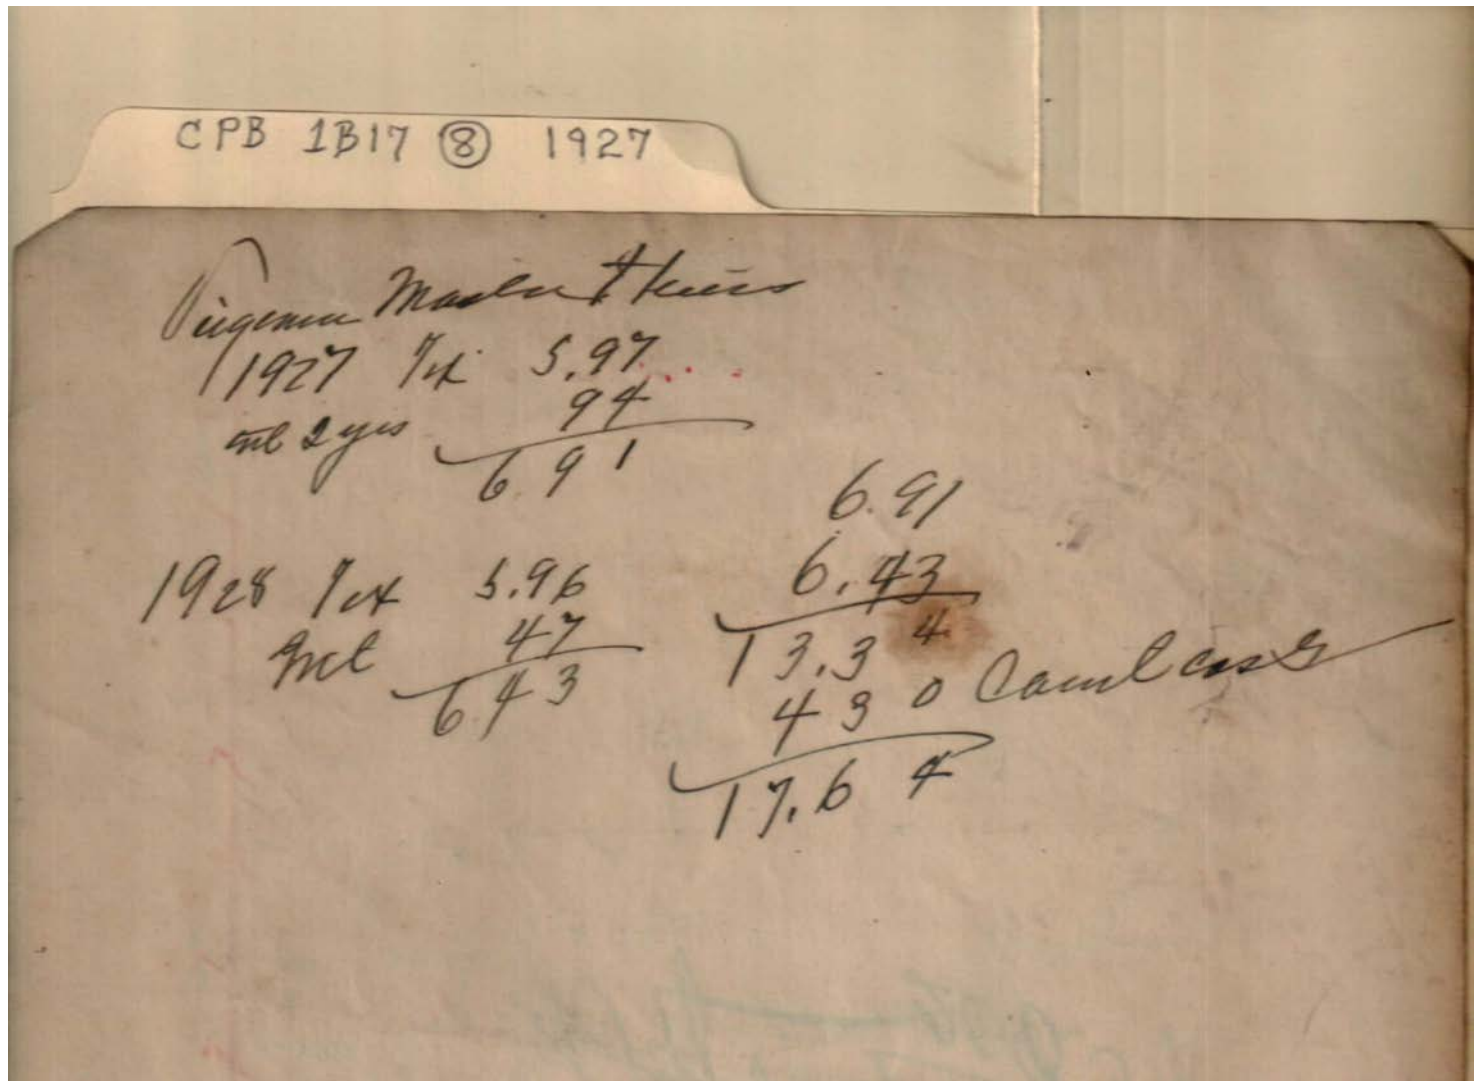 CPB 1B17 ⑧ 1927
Virginia
1927 Tax 5.97
int 2 yrs 94
6 9 1
1928 Tax 5.96
Int 47
6 43
6.91
6.43
13.3 4
4 3 0 Court cost
17.6 4